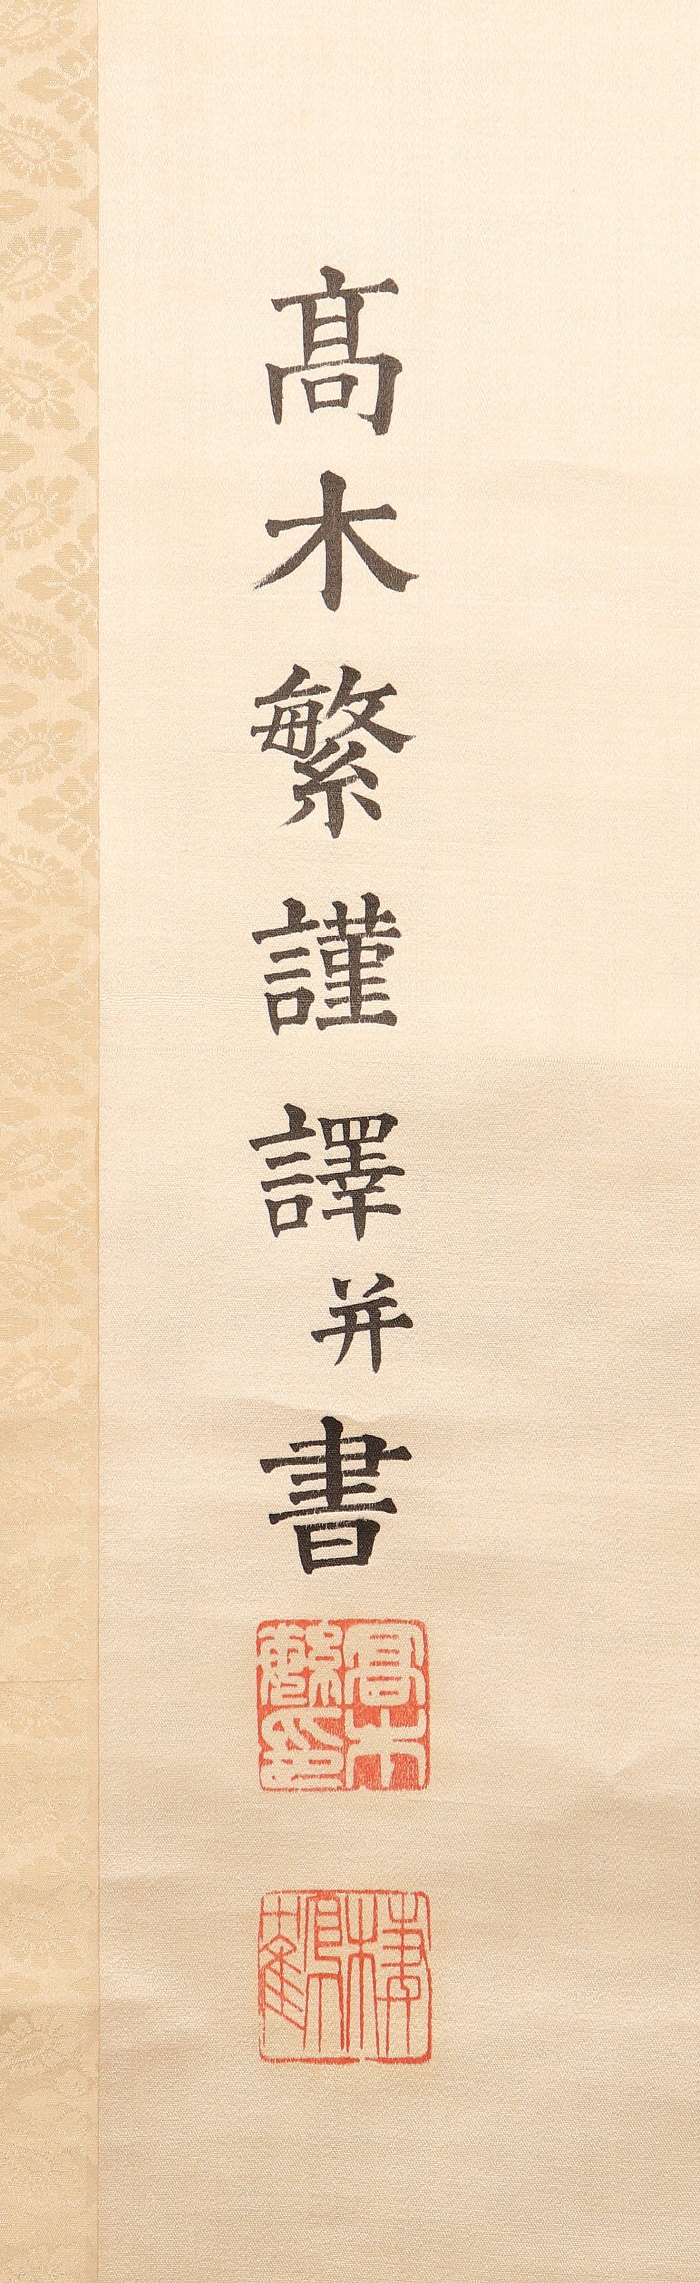 髙木繁謹譯并書
髙木繁印